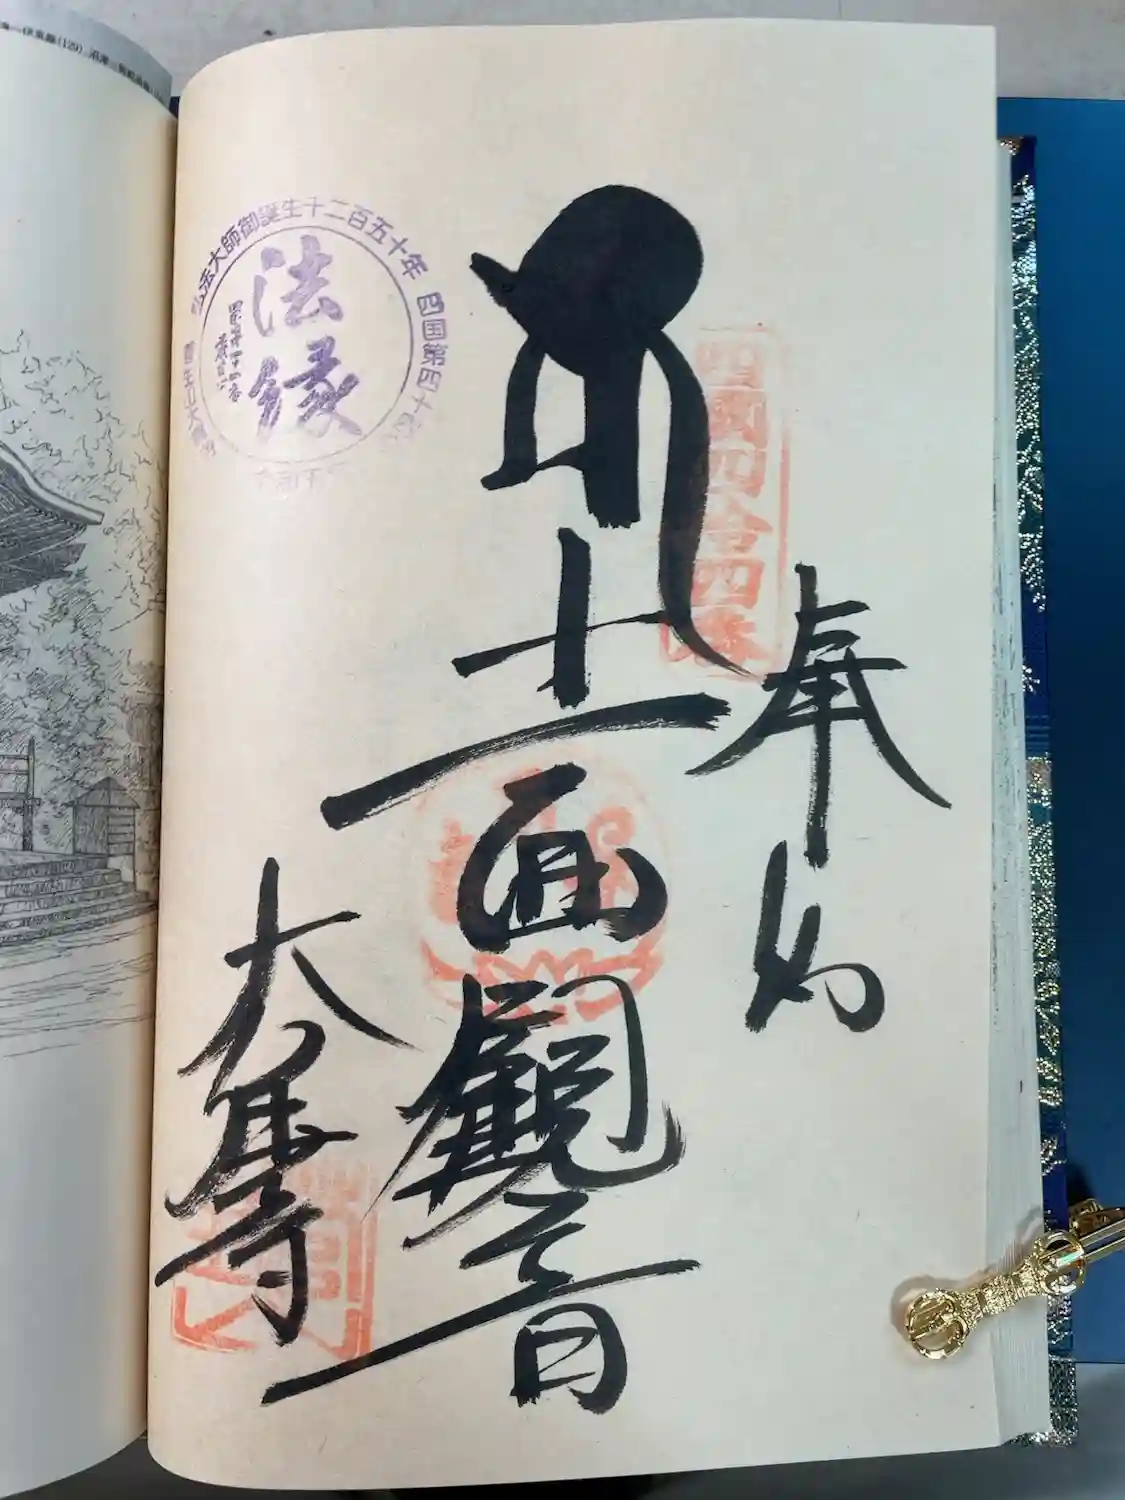 四國四拾四番
奉納
十一面觀音
大寶寺
弘法大師御誕生千二百五十年 四国第四十
法縁